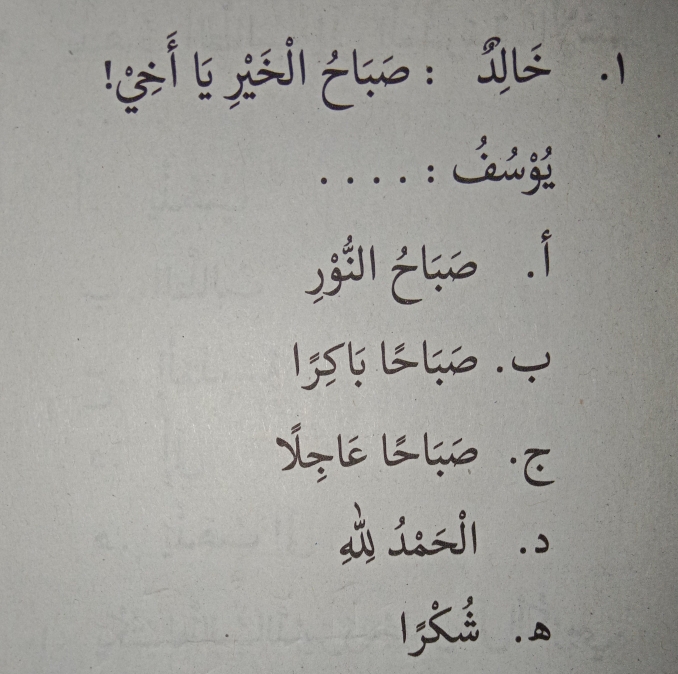 ١. خَالِدٌ : صَبَاحُ الْخَيْرِ يَا أَخِيْ!
يُوْسُفُ : . . . .
أ. صَبَاحُ النُّوْرِ
ب. صَبَاحًا بَاكِرًا
ج. صَبَاحًا عَاجِلًا
د. الْحَمْدُ لِلّٰهِ
ه. شُكْرًا